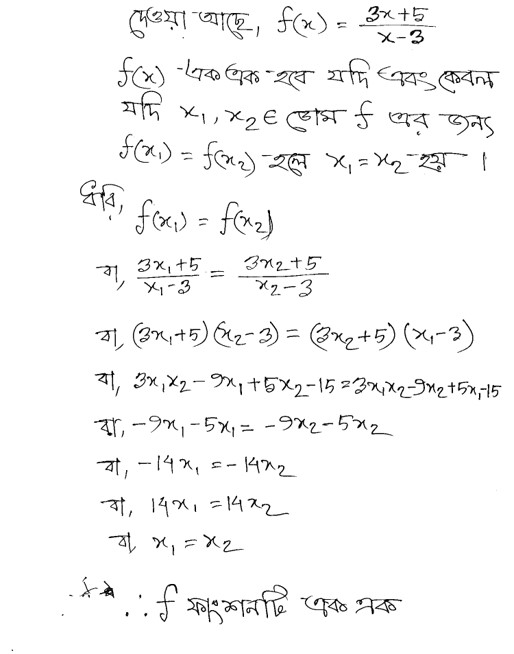 দেওয়া আছে, f(x) = (3x+5)/(x-3)
f(x) এক এক হবে যদি এবং কেবল
যদি x₁, x₂ ∈ ডোম f এর জন্য
f(x₁) = f(x₂) হলে x₁ = x₂ হয় ।
ধরি, f(x₁) = f(x₂)
বা, (3x₁+5)/(x₁-3) = (3x₂+5)/(x₂-3)
বা, (3x₁+5)(x₂-3) = (3x₂+5)(x₁-3)
বা, 3x₁x₂-9x₁+5x₂-15=3x₁x₂-9x₂+5x₁-15
বা, -9x₁-5x₁= -9x₂-5x₂
বা, -14x₁ = -14x₂
বা, 14x₁ =14x₂
বা, x₁ = x₂
∴ f ফাংশনটি এক এক